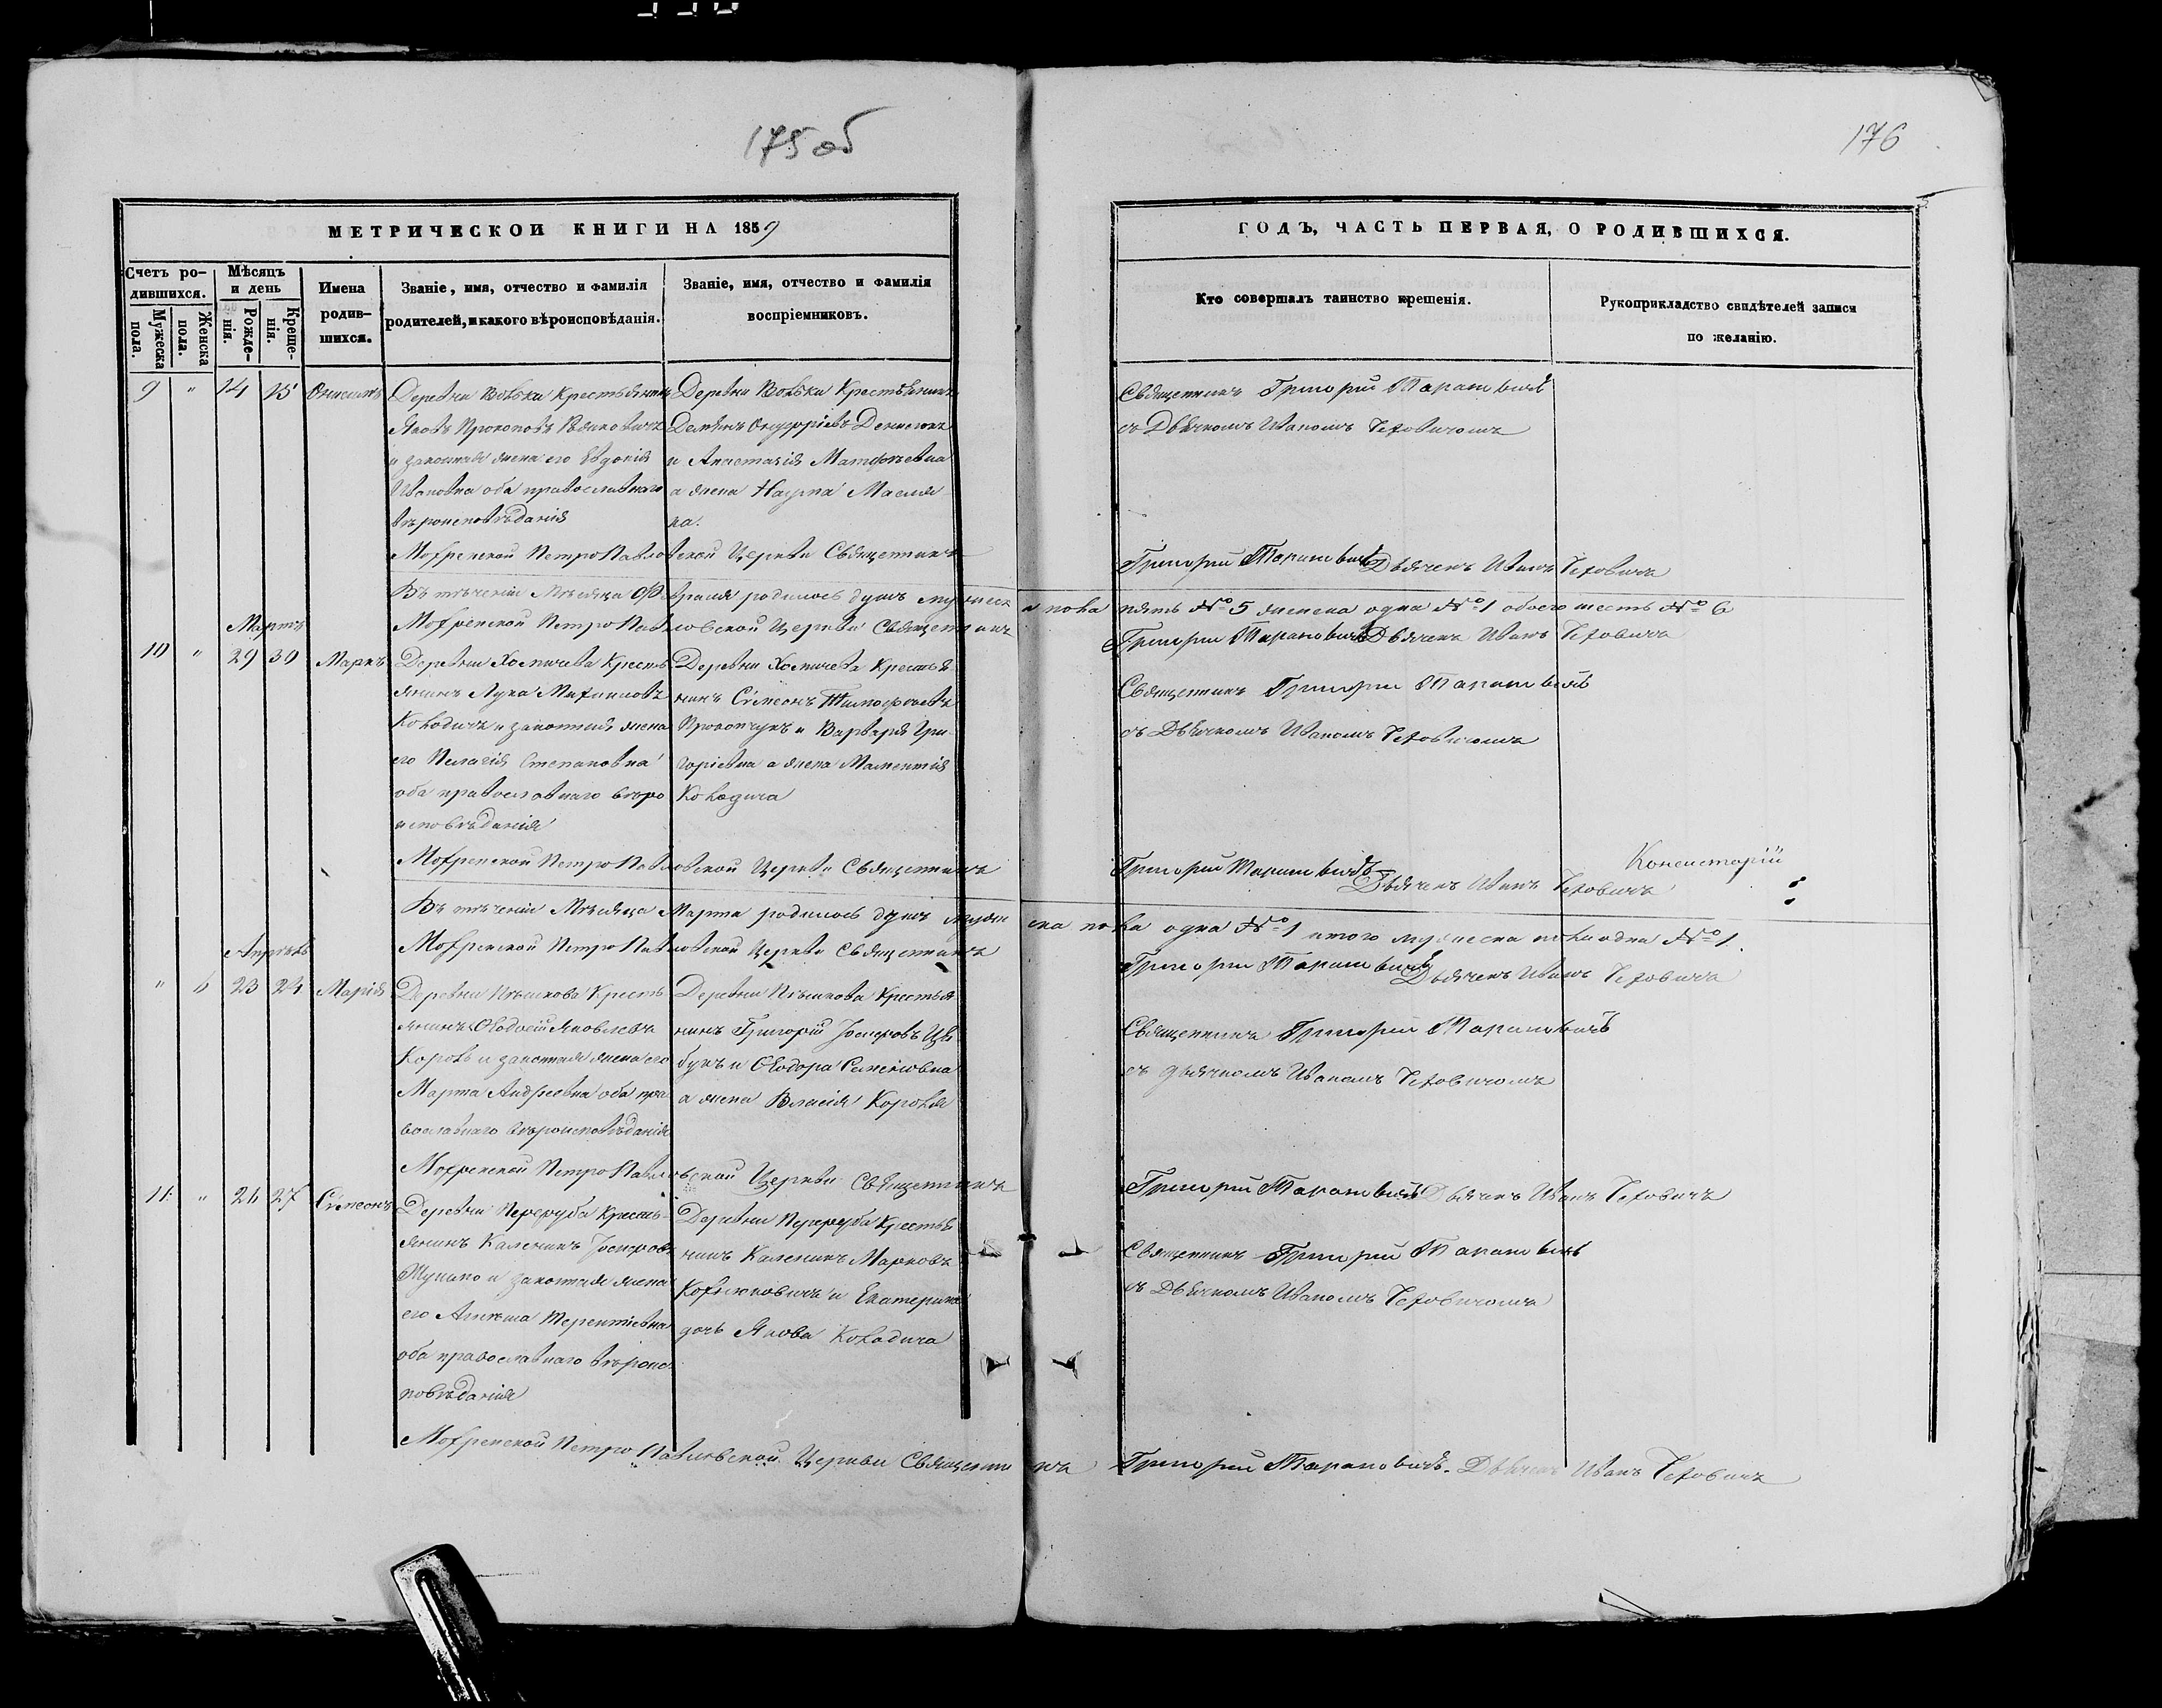 175 об
176
МЕТРИЧЕСКОЙ КНИГИ НА 1859
ГОДЪ, ЧАСТЬ ПЕРВАЯ, О РОДИВШИХСЯ.
Счетъ ро-
дившихся.
Мужеска
пола.
Женска
пола.
Мѣсяцъ
и день
Рожде-
нія.
Креще-
нія.
Имена
родив-
шихся.
Званіе, имя, отчество и фамилія
родителей, и какого вѣроисповѣданія.
Званіе, имя, отчество и фамилія
воспріемниковъ.
Кто совершалъ таинство крещенія.
Рукоприкладство свидѣтелей записи
по желанію.
9 " 14 15 Онисимъ
Деревни Вольки Крестьянинъ
Яковъ Прокоповъ
и законная жена его Евдокія
Ивановна оба православнаго
вѣроисповѣданія
Деревни Вольки Крестьянинъ
Демьянъ Онуфріевъ Денисюкъ
и Анастасія Матфѣевна
а жена Наума
Священникъ Григорій Таранович
съ Дьячкомъ Иваномъ
Мохренской Петро Павловской Церкви Священникъ
Григорій Таранович Дьячекъ Иванъ
Въ теченіи Мѣсяца Февраля родилось душъ мужеска пола пять №5 женска одна №1 обоего шесть №6
Мохренской Петро Павловской Церкви Священникъ
Григорій Таранович Дьячекъ Иванъ
Мартъ
10 " 29 30 Маркъ
Деревни Хомичева Кресть
янинъ Лука Михаиловъ
Колодичъ и законная жена
его Пелагія Степановна
оба православнаго вѣро
исповѣданія
Деревни Хомичева Крестья
нинъ Сѵмеонъ Тимофеевъ
Прокопчукъ и Варвара Гри
горіевна а жена Маментія
Колодича
Священникъ Григорій Таранович
съ Дьячкомъ Иваномъ
Мохренской Петро Павловской Церкви Священникъ
Григорій Таранович Дьячекъ Иванъ
Консисторіи
Въ теченіи Мѣсяца Марта родилось душъ мужеска пола одна №1 итого мужеска пола одна №1.
Мохренской Петро Павловской Церкви Священникъ
Григорій Таранович Дьячекъ Иванъ
Апрѣль
" 6 23 24 Марія
Деревни Пѣшкова Кресть
янинъ Ѳеодосій Яковлевъ
Король и законная жена его
Марта Андреевна оба пра
вославнаго вѣроисповѣданія
Деревни Пѣшкова Крестья
нинъ Григорій Іосифовъ
и Ѳеодора Семеновна
а жена Власія Короля
Священникъ Григорій Таранович
съ дьячкомъ Иваномъ
Мохренской Петро Павловской Церкви Священникъ
Григорій Таранович Дьячекъ Иванъ
11 " 26 27 Сѵмеонъ
Деревни Переруба Кресть-
янинъ Каленикъ Іосифовъ
и законная жена
его Терентіевна
оба православнаго вѣроис
повѣданія
Деревни Переруба Крестья
нинъ Каленикъ Марковъ
и Екатерина
дочь Якова Колодича
Священникъ Григорій Таранович
съ Дьячкомъ Иваномъ
Мохренской Петро Павловской Церкви Священникъ
Григорій Тарановичъ. Дьячекъ Иванъ